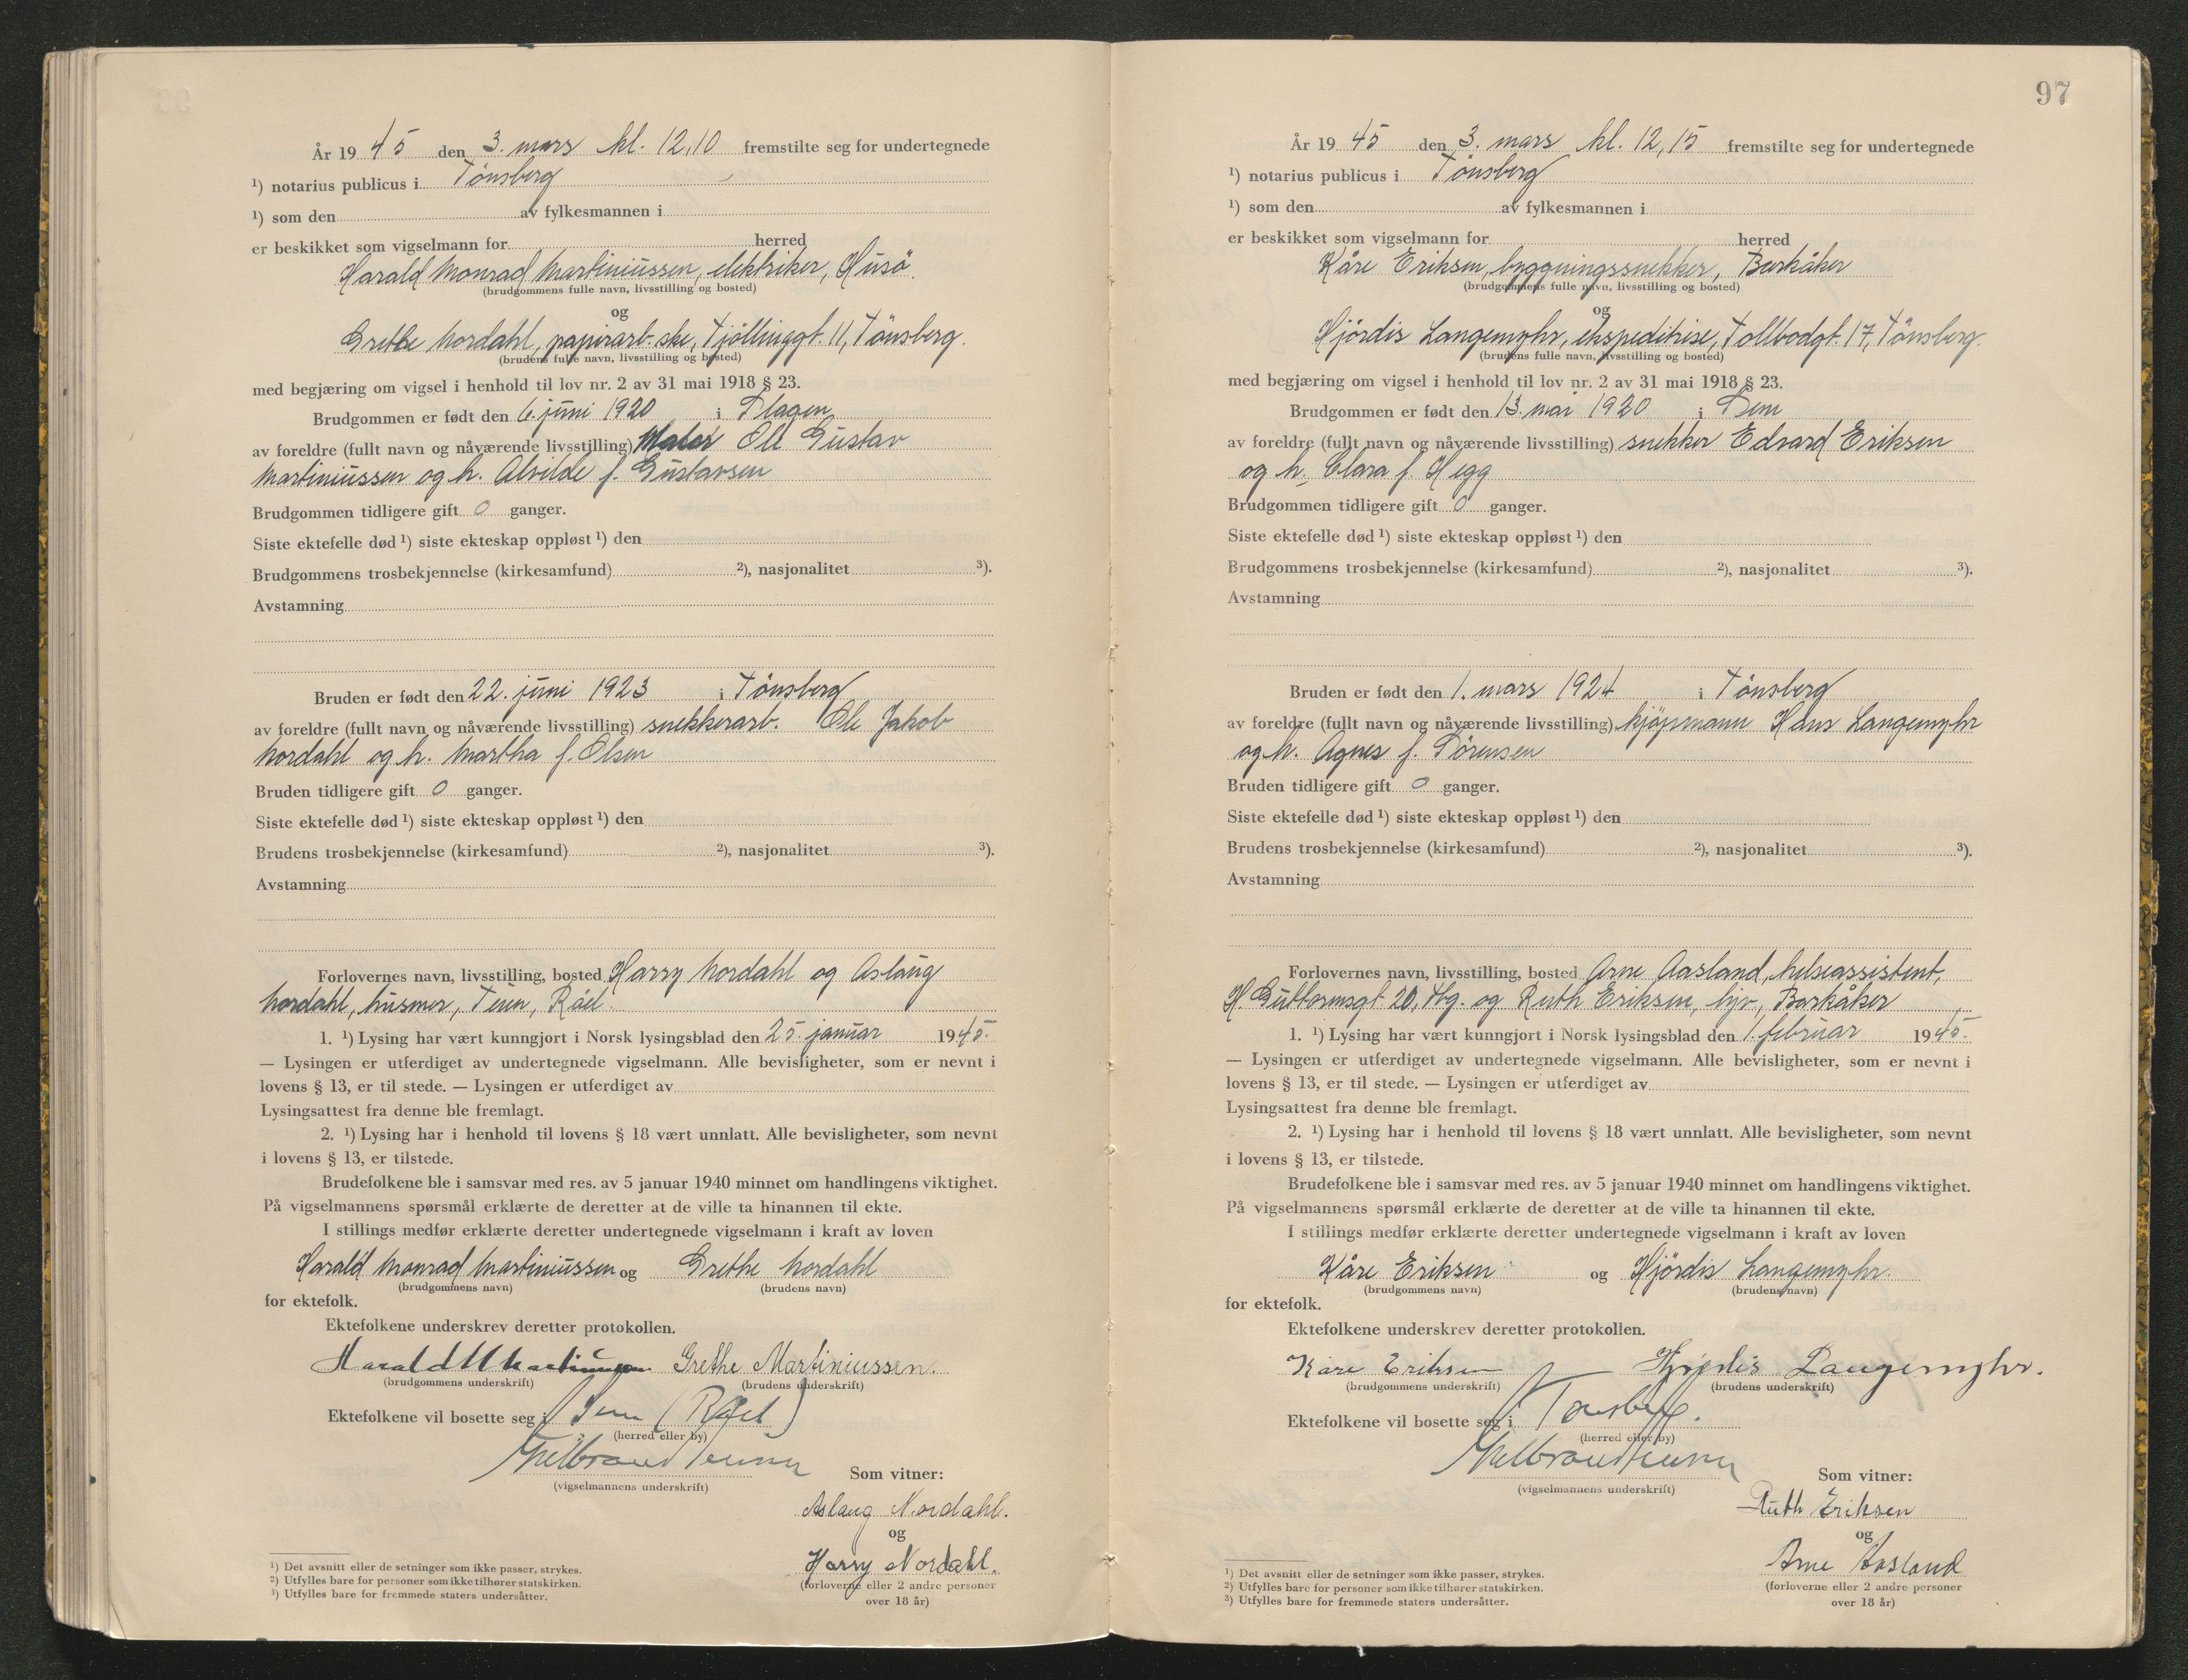 År 19 45 den 3. mars kl. 12,10 fremstilte seg for undertegnede
¹) notarius publicus i Tönsberg
¹) som den av fylkesmannen i
er beskikket som vigselmann for herred
Harald Monrad Martiniussen, elektriker, Husö.
(brudgommens fulle navn, livsstilling og bosted)
og
Grethe Nordahl, papirarb.ske, Tjöllinggt. 11, Tönsberg.
(brudens fulle navn, livsstilling og bosted)
med begjæring om vigsel i henhold til lov nr. 2 av 31 mai 1918 § 23.
Brudgommen er født den 6. juni 1920 i Slagen
av foreldre (fullt navn og nåværende livsstilling) Maler Ole Gustav
Martiniussen og h. Alvilde f. Gustavsen
Brudgommen tidligere gift 0 ganger.
Siste ektefelle død ¹) siste ekteskap oppløst ¹) den
Brudgommens trosbekjennelse (kirkesamfund) ²), nasjonalitet ³).
Avstamning
Bruden er født den 22. juni 1923 i Tönsberg
av foreldre (fullt navn og nåværende livsstilling) snekkerarb. Ole Jakob
Nordahl og h. Martha f. Olsen
Bruden tidligere gift 0 ganger.
Siste ektefelle død ¹) siste ekteskap oppløst ¹) den
Brudens trosbekjennelse (kirkesamfund) ²), nasjonalitet ³).
Avstamning
Forlovernes navn, livsstilling, bosted Harry Nordahl og Aslaug
Nordahl, husmor, Råel.
1. ¹) Lysing har vært kunngjort i Norsk lysingsblad den 25. januar 1945.
— Lysingen er utferdiget av undertegnede vigselmann. Alle bevisligheter, som er nevnt i
lovens § 13, er til stede. — Lysingen er utferdiget av
Lysingsattest fra denne ble fremlagt.
2. ¹) Lysing har i henhold til lovens § 18 vært unnlatt. Alle bevisligheter, som nevnt
i lovens § 13, er tilstede.
Brudefolkene ble i samsvar med res. av 5 januar 1940 minnet om handlingens viktighet.
På vigselmannens spørsmål erklærte de deretter at de ville ta hinannen til ekte.
I stillings medfør erklærte deretter undertegnede vigselmann i kraft av loven
Harald Monrad Martiniussen og Grethe Nordahl
(brudgommens navn) (brudens navn)
for ektefolk.
Ektefolkene underskrev deretter protokollen.
Harald M Martiniussen Grethe Martiniussen.
(brudgommens underskrift) (brudens underskrift)
Ektefolkene vil bosette seg i Sem (Råel)
(herred eller by)
(vigselmannens underskrift)
Som vitner:
Aslaug Nordahl.
og
Harry Nordahl.
(forloverne eller 2 andre personer
over 18 år)
¹) Det avsnitt eller de setninger som ikke passer, strykes.
²) Utfylles bare for personer som ikke tilhører statskirken.
³) Utfylles bare for fremmede staters undersåtter.
97
År 19 45 den 3. mars kl. 12,15 fremstilte seg for undertegnede
¹) notarius publicus i Tönsberg
¹) som den av fylkesmannen i
er beskikket som vigselmann for herred
Kåre Eriksen, byggningssnekker, Barkåker
(brudgommens fulle navn, livsstilling og bosted)
og
Hjördis Langemyhr, ekspeditrise, Tollbodgt. 17, Tönsberg.
(brudens fulle navn, livsstilling og bosted)
med begjæring om vigsel i henhold til lov nr. 2 av 31 mai 1918 § 23.
Brudgommen er født den 13. mai 1920 i Sem
av foreldre (fullt navn og nåværende livsstilling) snekker Edvard Eriksen
og h. Clara f. Hegg
Brudgommen tidligere gift 0 ganger.
Siste ektefelle død ¹) siste ekteskap oppløst ¹) den
Brudgommens trosbekjennelse (kirkesamfund) ²), nasjonalitet ³).
Avstamning
Bruden er født den 1. mars 1924 i Tönsberg
av foreldre (fullt navn og nåværende livsstilling) kjöpmann Hans Langemyhr
og h. Agnes f. Sörensen
Bruden tidligere gift 0 ganger.
Siste ektefelle død ¹) siste ekteskap oppløst ¹) den
Brudens trosbekjennelse (kirkesamfund) ²), nasjonalitet ³).
Avstamning
Forlovernes navn, livsstilling, bosted Arne Aasland, helseassistent,
H. Guttormsgt. 20, Tbg. og Ruth Eriksen, hjv., Barkåker
1. ¹) Lysing har vært kunngjort i Norsk lysingsblad den 1. februar 1945.
— Lysingen er utferdiget av undertegnede vigselmann. Alle bevisligheter, som er nevnt i
lovens § 13, er til stede. — Lysingen er utferdiget av
Lysingsattest fra denne ble fremlagt.
2. ¹) Lysing har i henhold til lovens § 18 vært unnlatt. Alle bevisligheter, som nevnt
i lovens § 13, er tilstede.
Brudefolkene ble i samsvar med res. av 5 januar 1940 minnet om handlingens viktighet.
På vigselmannens spørsmål erklærte de deretter at de ville ta hinannen til ekte.
I stillings medfør erklærte deretter undertegnede vigselmann i kraft av loven
Kåre Eriksen og Hjördis Langemyhr.
(brudgommens navn) (brudens navn)
for ektefolk.
Ektefolkene underskrev deretter protokollen.
Kåre Eriksen Hjørdis Langemyhr.
(brudgommens underskrift) (brudens underskrift)
Ektefolkene vil bosette seg i Tønsberg.
(herred eller by)
(vigselmannens underskrift)
Som vitner:
Ruth Eriksen
og
Arne Aasland
(forloverne eller 2 andre personer
over 18 år)
¹) Det avsnitt eller de setninger som ikke passer, strykes.
²) Utfylles bare for personer som ikke tilhører statskirken.
³) Utfylles bare for fremmede staters undersåtter.